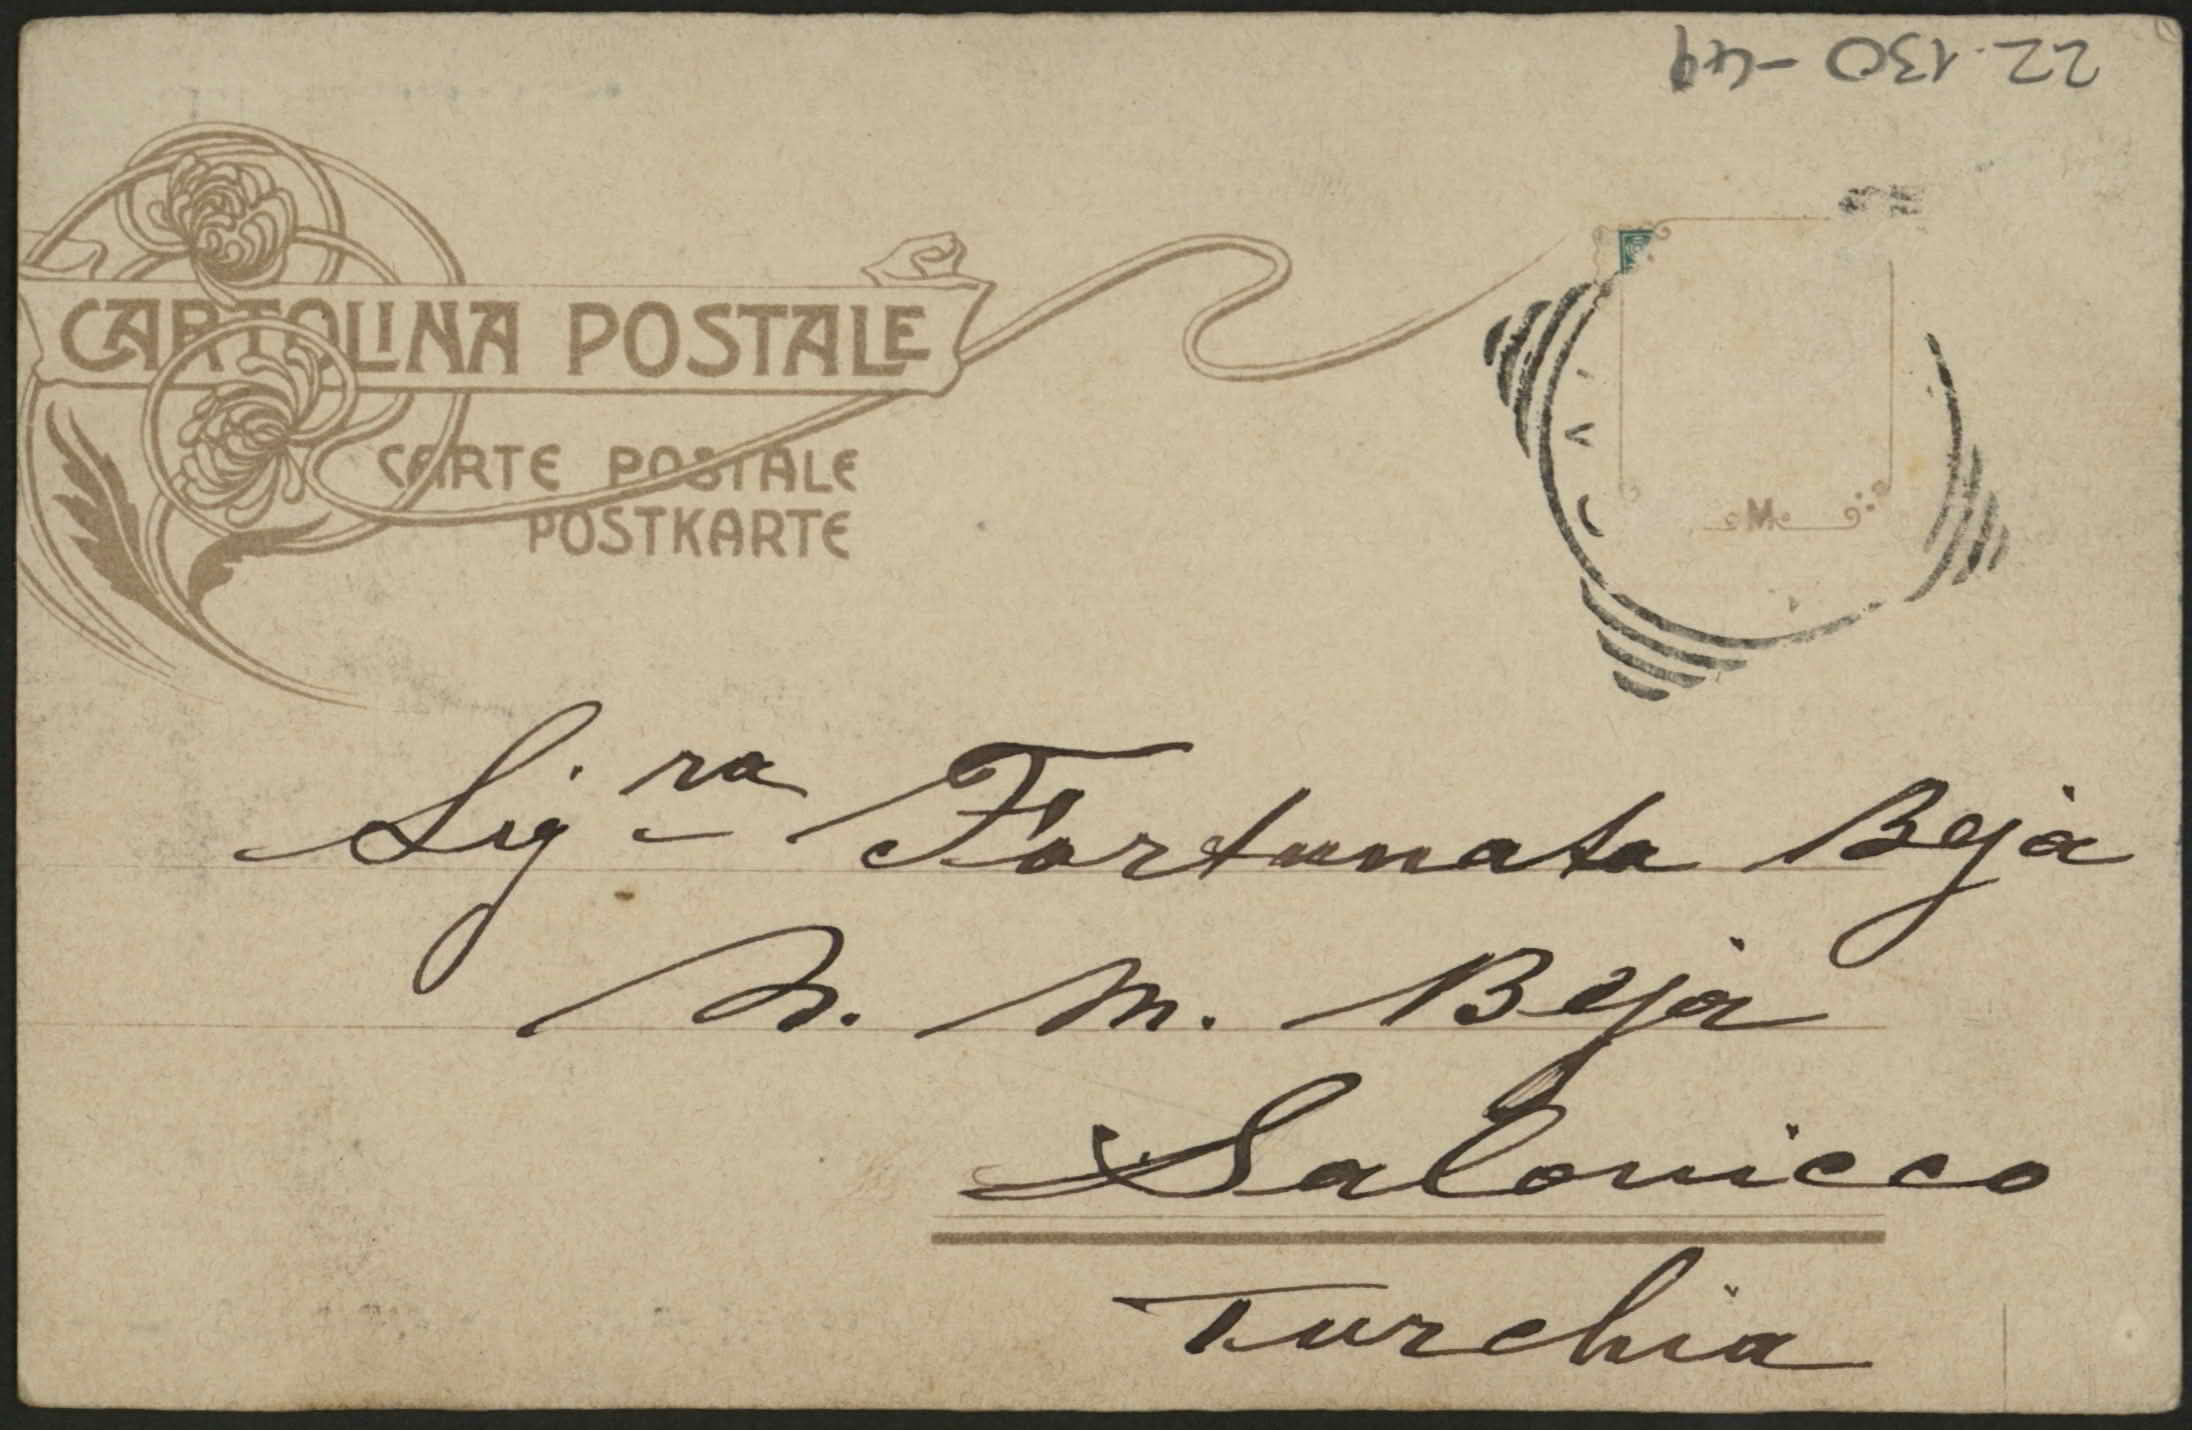 22.130-44
CARTOLINA POSTALE
CARTE POSTALE
POSTKARTE
M
Sig.ra Fortunata Beja
N. M. Beja
Salonicco
Turchia